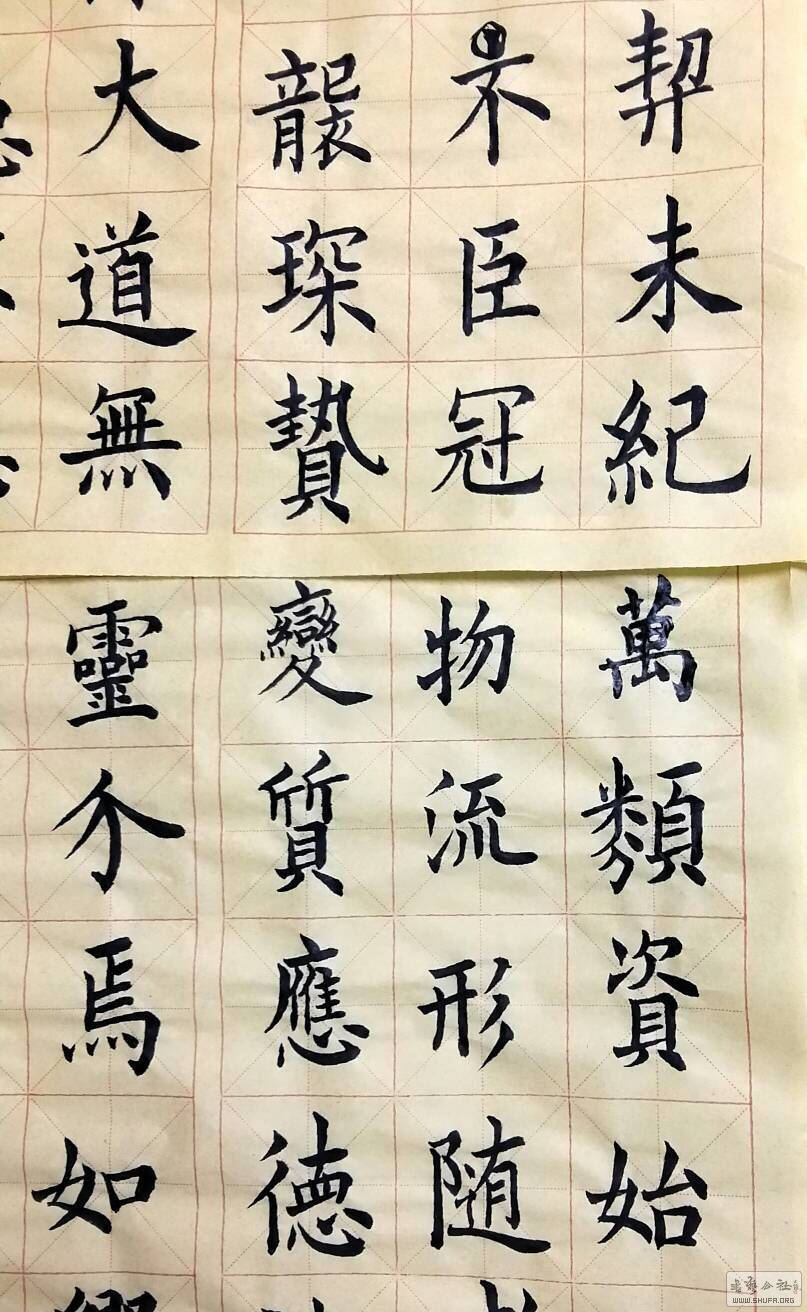 契未紀
不臣冠
襲琛贄
大道無
萬類資始
物流形随
變質應德
靈介焉如
WWW.SHUFA.ORG